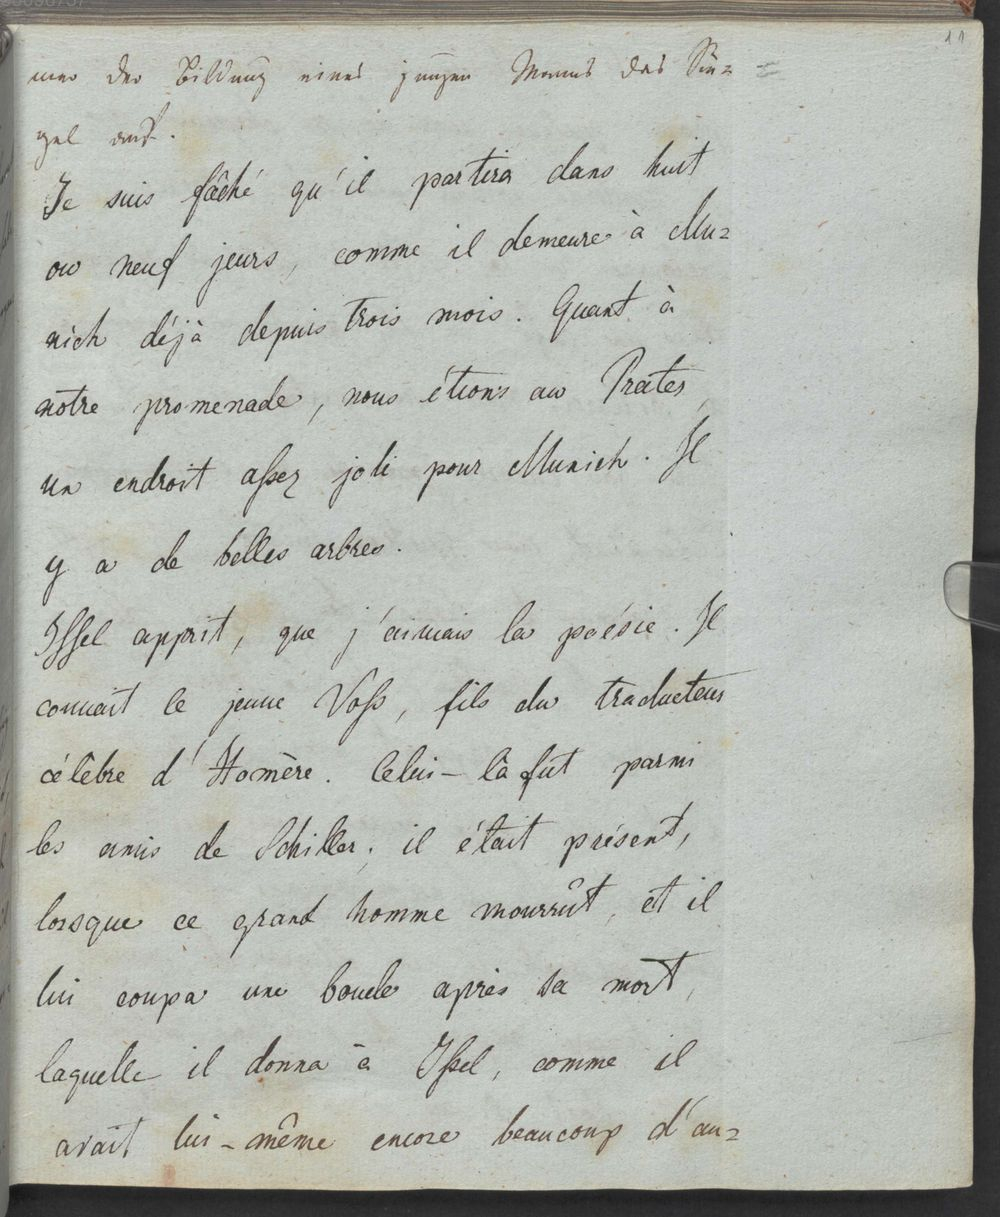 11
mer der Bildung eines jungen Manns das Sie=
gel auf.
Je suis fâché qu'il partira dans huit
ou neuf jeurs, comme il demeure à Mu=
nich déjà depuis trois mois. Quant à
nôtre promenade, nous étions au Prater,
un endroit aßez joli pour Munich. Il
y a de belles arbres.
Issel apprit, que j'aimais la poésie. Il
connait le jeune Voß, fils du traducteur
célèbre d'Homère. Celui-là fut parmi
les amis de Schiller; il était présent,
lorsque ce grand homme mourrût, et il
lui coupa une boucle après sa mort,
laquelle il donna à Ißel, comme il
avait lui-même encore beaucoup d'au=